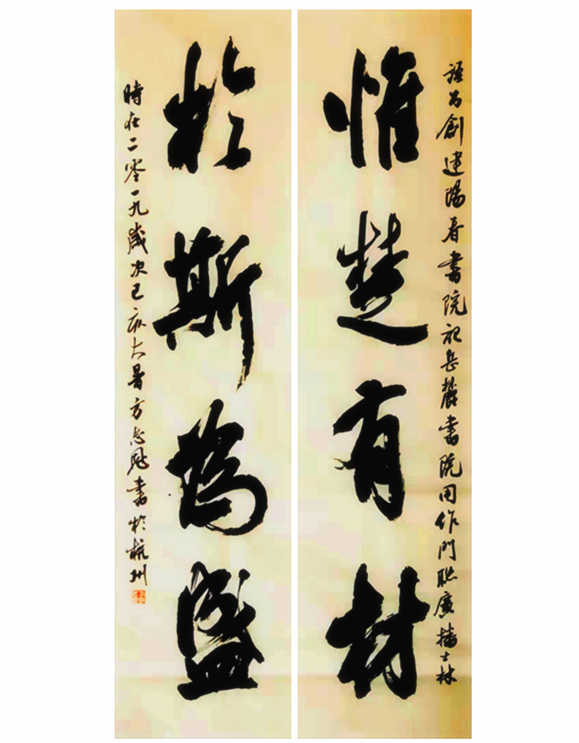 為創建陽春書院岳麓書院用作門聯廣播士林
惟楚有材
於斯為盛
時在二零一九歲次己亥大暑方志書於杭州